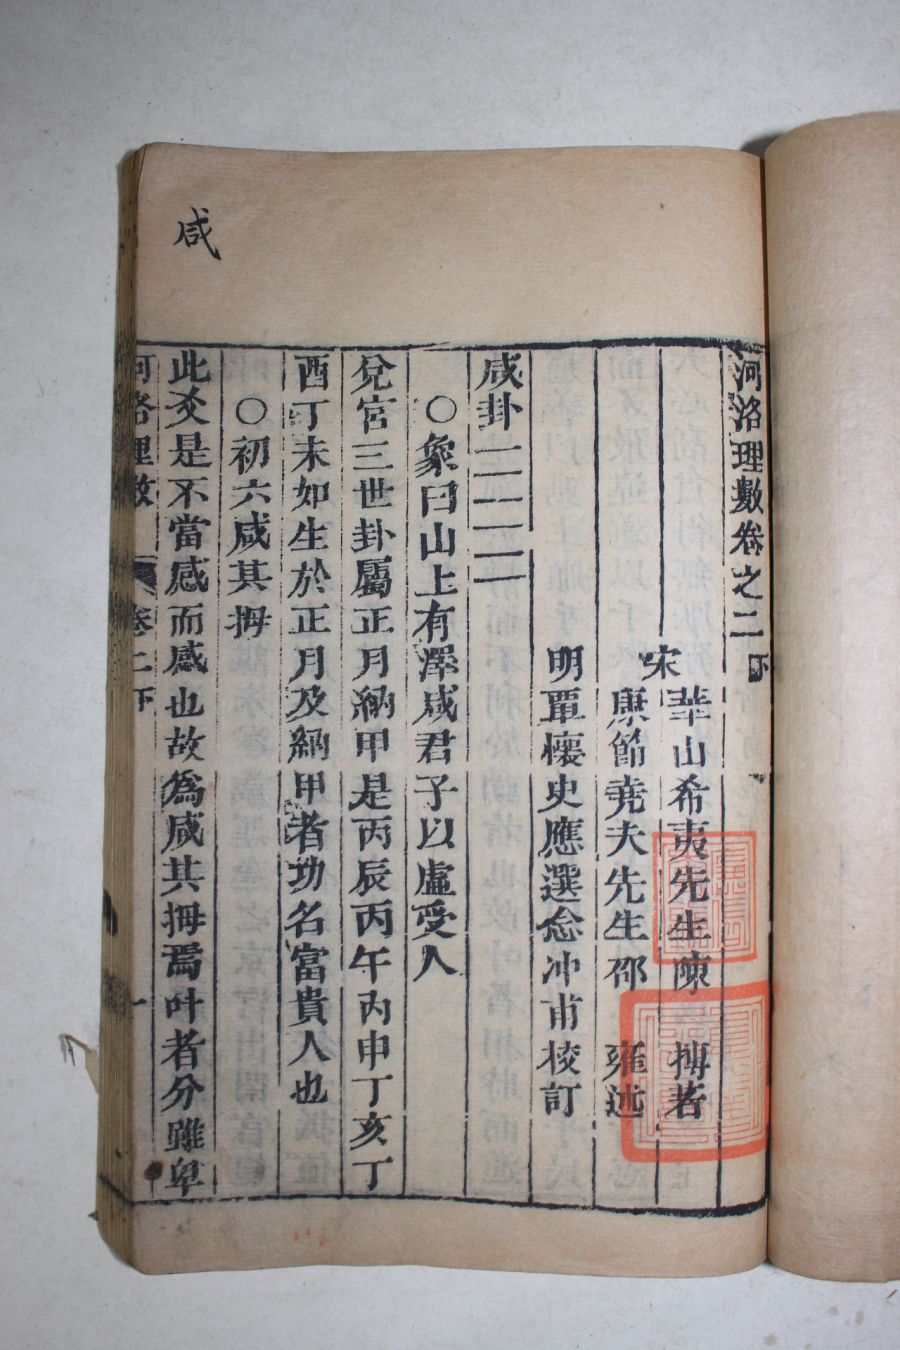 咸
河洛理數卷之二下
宋
華山希夷先生陳 摶著
康節堯夫先生邵 雍述
明 覃懷史應選念冲甫校訂
咸卦
○象曰山上有澤咸君子以虛受人
兌宮三世卦屬正月納甲是丙辰丙午丙申丁亥丁
酉丁未如生於正月及納甲者功名富貴人也
○初六咸其拇
此爻是不當感而感也故為咸其拇焉叶者分雖卑
河洛理數 卷二下 一